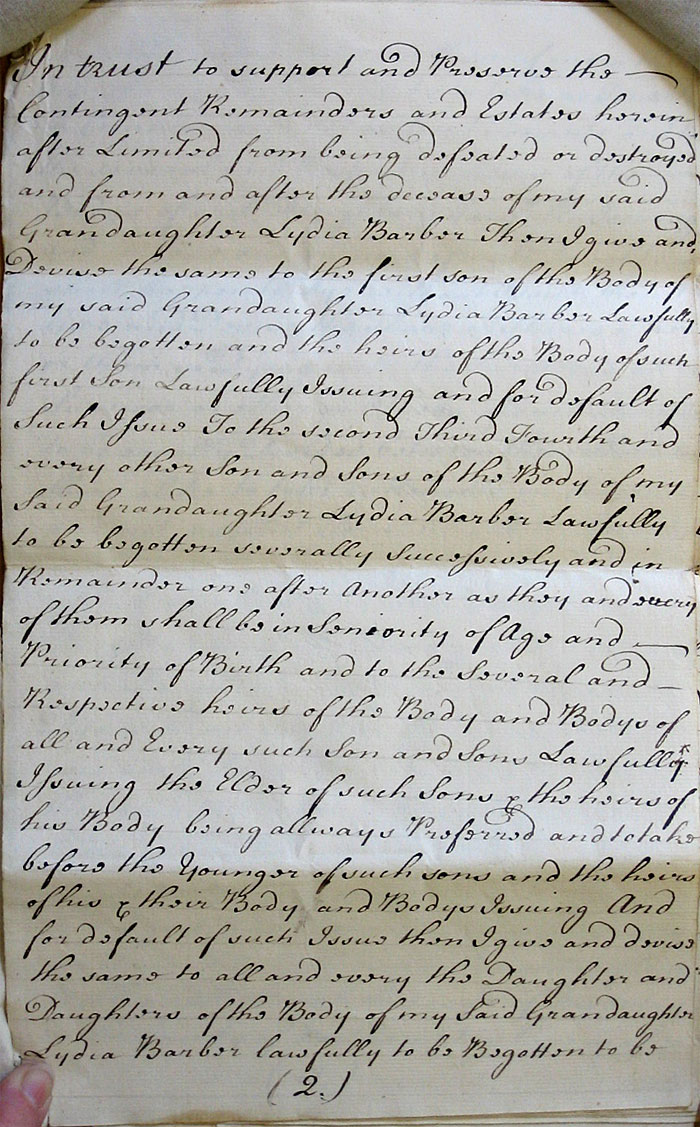 In trust to support and Preserve the —
Contingent Remainders and Estates herein
after Limited from being defeated or destroyed
and from and after the decease of my said
Grandaughter Lydia Barber Then I give and
Devise the same to the first son of the Body of
my said Grandaughter Lydia Barber Lawfully
to be begotten and the heirs of the Body of such
first Son Lawfully Issuing and for default of
Such Issue To the second Third Fourth and
every other Son and Sons of the Body of my
Said Grandaughter Lydia Barber Lawfully
to be begotten severally Successively and in
Remainder one after Another as they and every
of them shall be in Seniority of Age and —
Priority of Birth and to the Several and —
Respective heirs of the Body and Bodys of
all and Every such Son and Sons Lawfully
Issuing the Elder of such Sons & the heirs of
his Body being allways Preferred and to take
before the Younger of such sons and the heirs
of his & their Body and Bodys Issuing And
for default of such Issue then I give and devise
the same to all and every the Daughter and
Daughters of the Body of my Said Grandaughter
Lydia Barber lawfully to be Begotten to be
(2.)